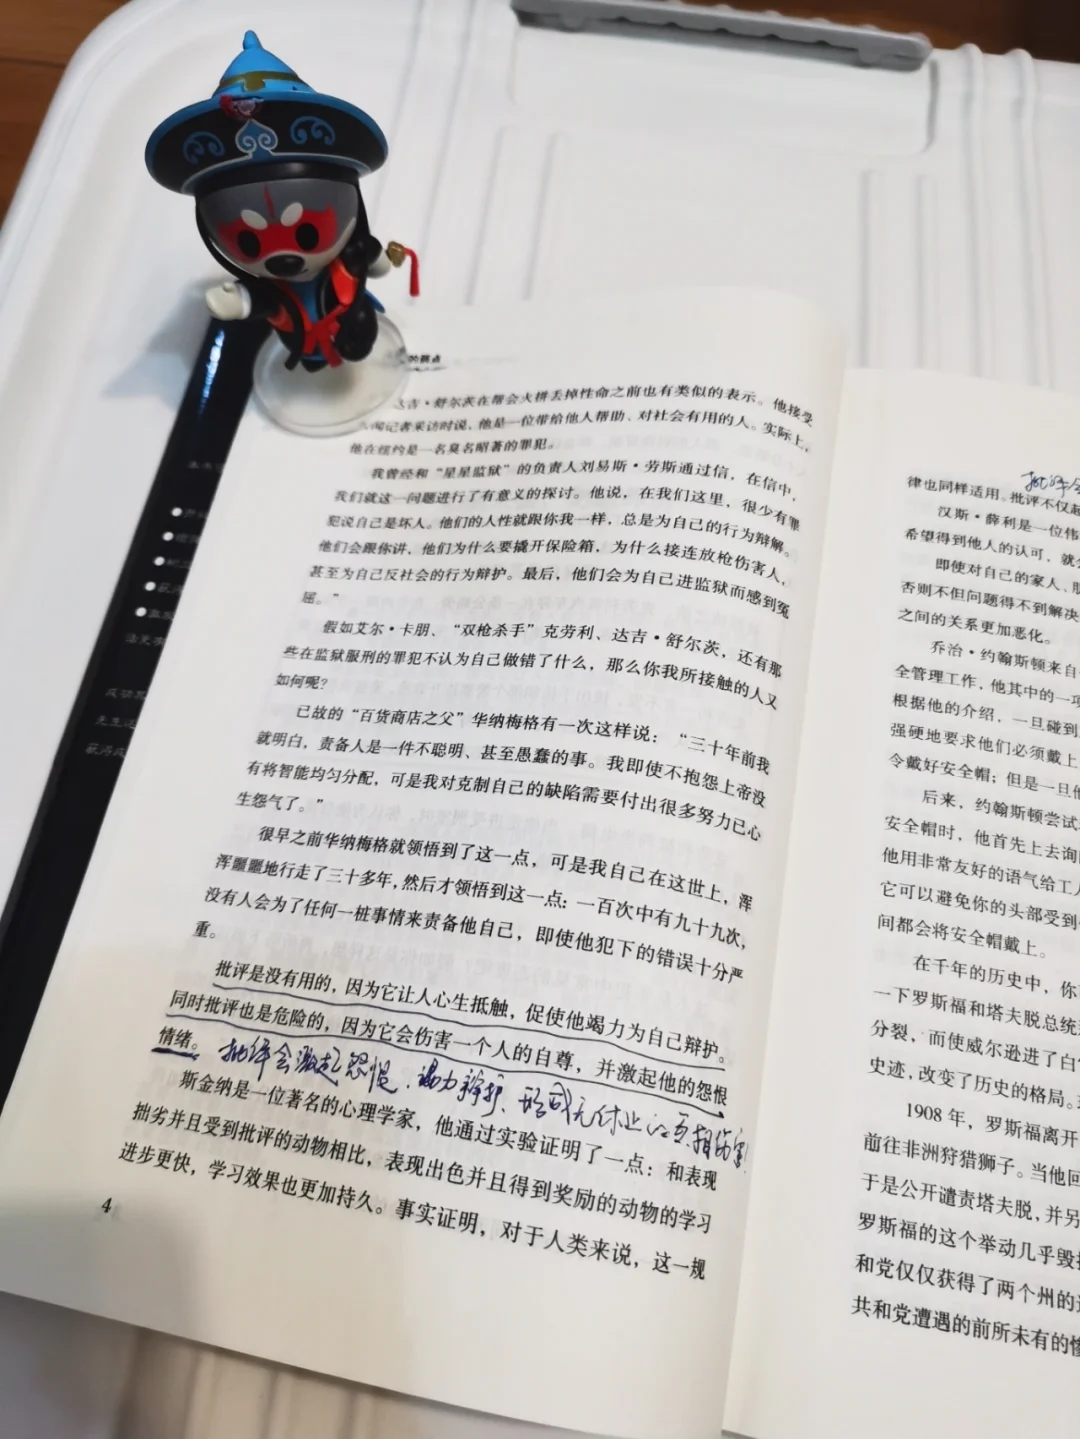 的弱点
达吉·舒尔茨在帮会火拼丢掉性命之前也有类似的表示。他接受
闻记者采访时说，他是一位带给他人帮助、对社会有用的人。实际上，
他在纽约是一名臭名昭著的罪犯。
我曾经和“星星监狱”的负责人刘易斯·劳斯通过信，在信中，
我们就这一问题进行了有意义的探讨。他说，在我们这里，很少有罪
犯说自己是坏人。他们的人性就跟你我一样，总是为自己的行为辩解。
他们会跟你讲，他们为什么要撬开保险箱，为什么接连放枪伤害人，
甚至为自己反社会的行为辩护。最后，他们会为自己进监狱而感到冤
屈。”
假如艾尔·卡朋、“双枪杀手”克劳利、达吉·舒尔茨，还有那
些在监狱服刑的罪犯不认为自己做错了什么，那么你我所接触的人又
如何呢？
已故的“百货商店之父”华纳梅格有一次这样说：“三十年前我
就明白，责备人是一件不聪明、甚至愚蠢的事。我即使不抱怨上帝没
有将智能均匀分配，可是我对克制自己的缺陷需要付出很多努力已心
生怨气了。”
很早之前华纳梅格就领悟到了这一点，可是我自己在这世上，浑
浑噩噩地行走了三十多年，然后才领悟到这一点：一百次中有九十九次，
没有人会为了任何一桩事情来责备他自己，即使他犯下的错误十分严
重。
批评是没有用的，因为它让人心生抵触，促使他竭力为自己辩护。
同时批评也是危险的，因为它会伤害一个人的自尊，并激起他的怨恨
情绪。
批评会激起怨恨、竭力辩护、形成无休止的互相伤害！
斯金纳是一位著名的心理学家，他通过实验证明了一点：和表现
拙劣并且受到批评的动物相比，表现出色并且得到奖励的动物的学习
进步更快，学习效果也更加持久。事实证明，对于人类来说，这一规
4
批评会
律也同样适用。批评不仅起
汉斯·薛利是一位伟
希望得到他人的认可，就会
即使对自己的家人、朋
否则不但问题得不到解决
之间的关系更加恶化。
乔治·约翰斯顿来自
全管理工作，他其中的一项
根据他的介绍，一旦碰到
强硬地要求他们必须戴上
令戴好安全帽；但是一旦他
后来，约翰斯顿尝试
安全帽时，他首先上去询问
他用非常友好的语气给工人
它可以避免你的头部受到
间都会将安全帽戴上。
在千年的历史中，你
一下罗斯福和塔夫脱总统
分裂，而使威尔逊进了白
史迹，改变了历史的格局。
1908 年，罗斯福离开
前往非洲狩猎狮子。当他回
于是公开谴责塔夫脱，并另
罗斯福的这个举动几乎毁
和党仅仅获得了两个州的
共和党遭遇的前所未有的惨